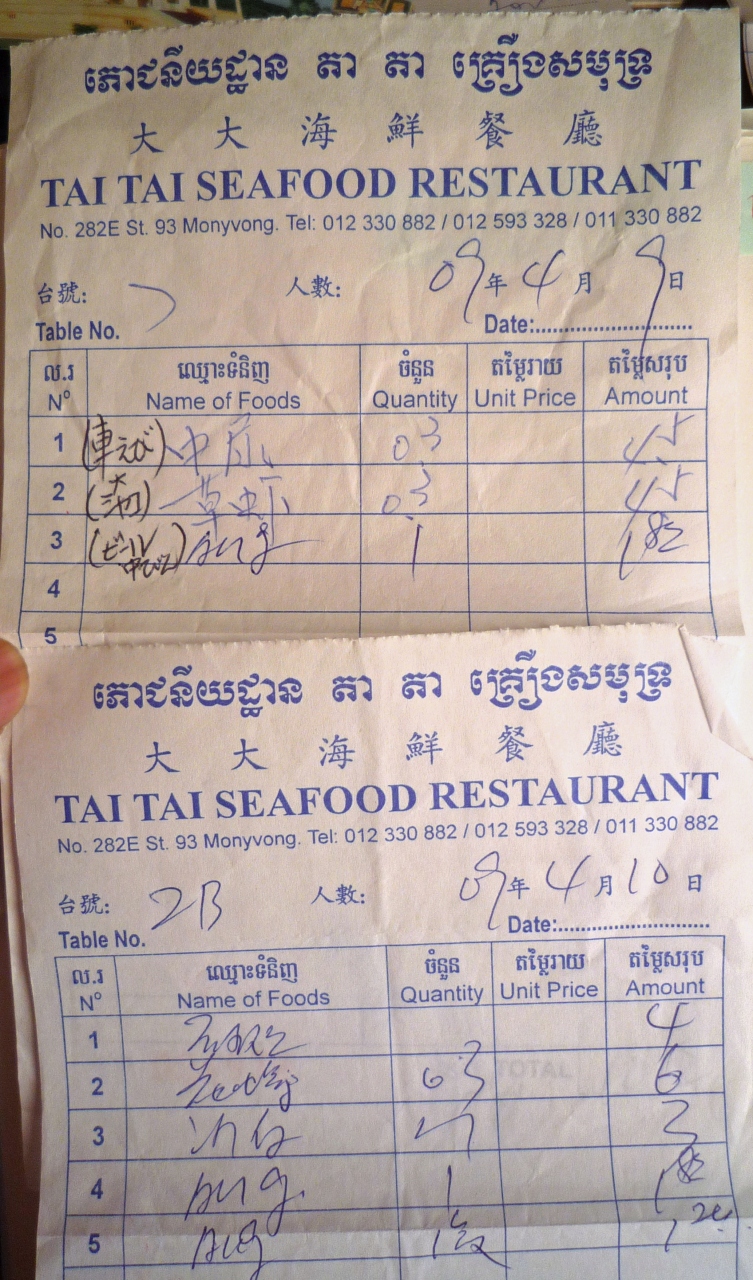 ភោជនីយដ្ឋាន តា តា គ្រឿងសមុទ្រ
大 大 海 鮮 餐 廳
TAI TAI SEAFOOD RESTAURANT
No. 282E St. 93 Monyvong. Tel: 012 330 882 / 012 593 328 / 011 330 882
台號: 人數: 09 年 4 月 9 日
Table No. Date:
ល.រ ឈ្មោះទំនិញ ចំនួន តម្លៃរាយ តម្លៃសរុប
Nº Name of Foods Quantity Unit Price Amount
1 (車えび) 03 45
2 草虾 03 45
3 (ビール 1 1 80
4
5
ភោជនីយដ្ឋាន តា តា គ្រឿងសមុទ្រ
大 大 海 鮮 餐 廳
TAI TAI SEAFOOD RESTAURANT
No. 282E St. 93 Monyvong. Tel: 012 330 882 / 012 593 328 / 011 330 882
台號: 2B 人數: 09 年 4 月 10 日
Table No. Date:
ល.រ ឈ្មោះទំនិញ ចំនួន តម្លៃរាយ តម្លៃសរុប
Nº Name of Foods Quantity Unit Price Amount
1 4
2 03 6
3 3
4 1 1 80
5
TOTAL